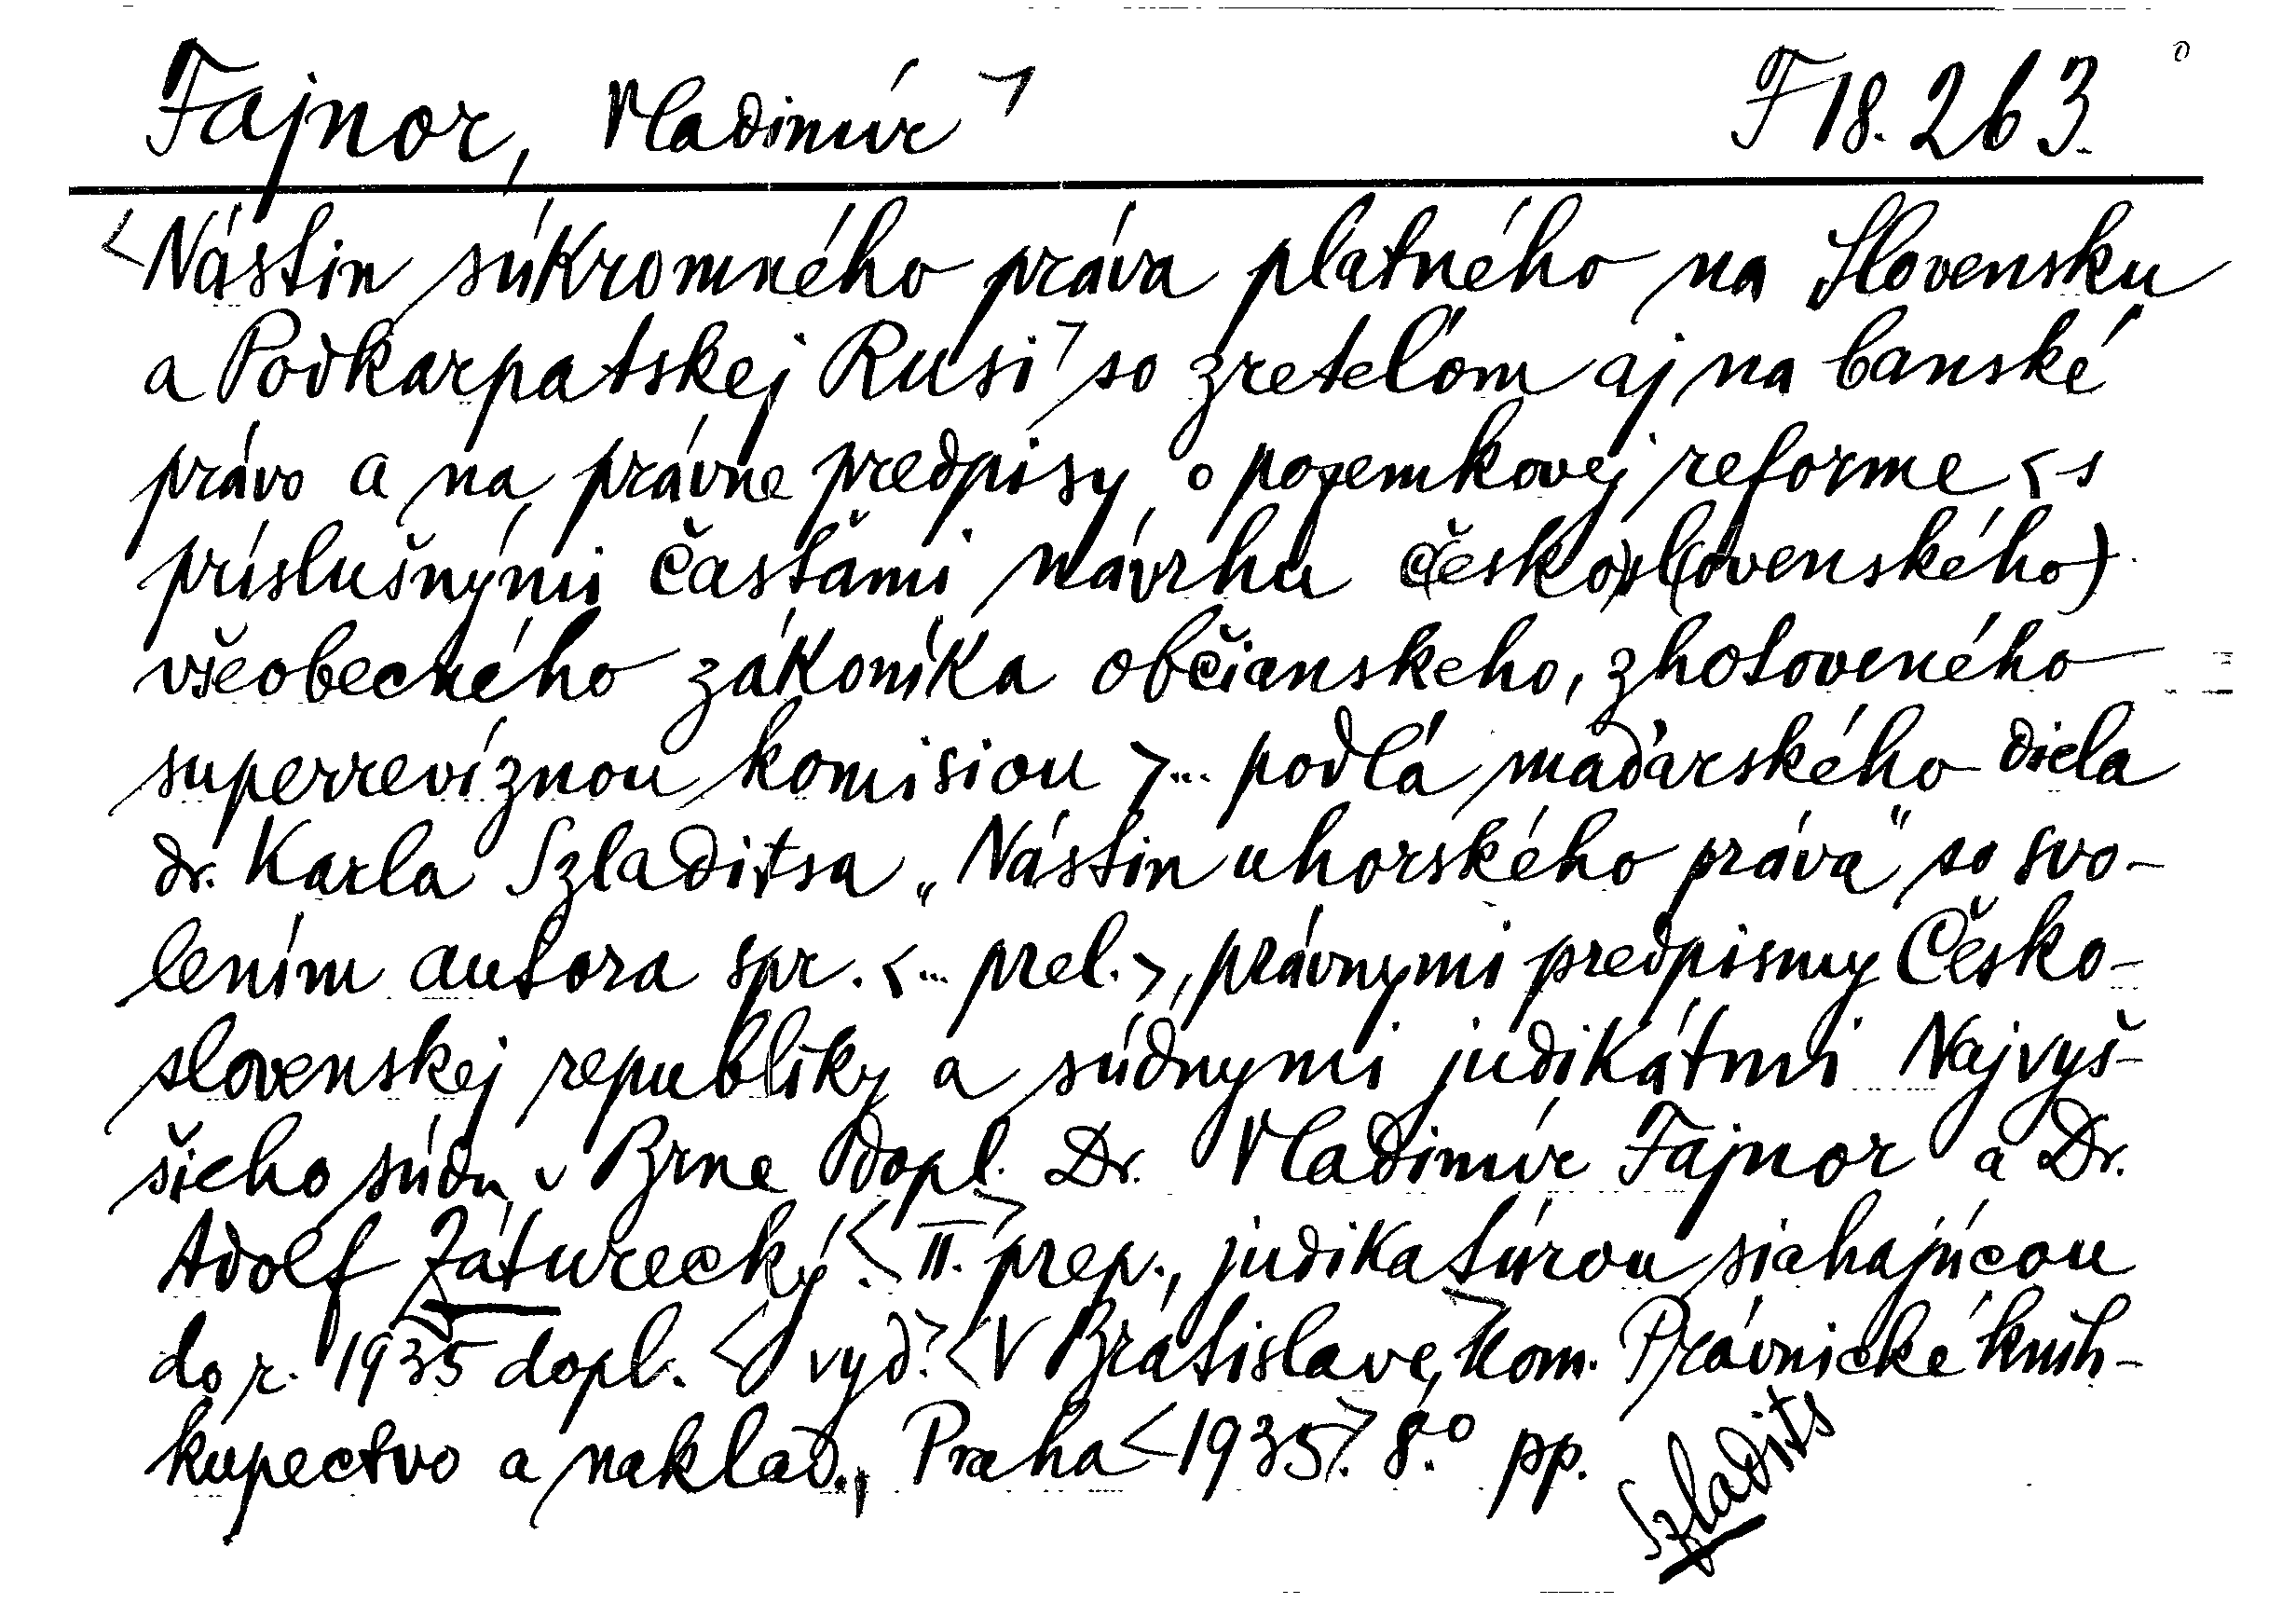 Fajnor, Vladimír > F 18.263.
<Nástin súkromného práva platného na Slovensku
a Podkarpatskej Rusi> so zreteľom aj na banské
právo a na právne predpisy o pozemkovej reforme <s
príslušnými časťami návrhu č(esko)sl(ovenského)
všeobecného zákoníka občianskeho, zhotoveného
superrevíznou komisiou >... podľa maďarského diela
dr. Karla Szladitsa „Nástin uhorského práva" so svo-
lením autora spr. <... prel.>, právnymi predpismy Česko-
slovenskej republiky a súdnymi judikátmi Najvyš-
šieho súdu v Brne dopl. Dr. Vladimír Fajnor a Dr.
Adolf Záturecký. <II.> prep., judikatúrou siahajúcou
do r. 1935 dopl. <vyd.> <V Bratislave,> Kom. Právnické kníh-
kupectvo a naklad., Praha <1935>. 8.° pp.
Szladits